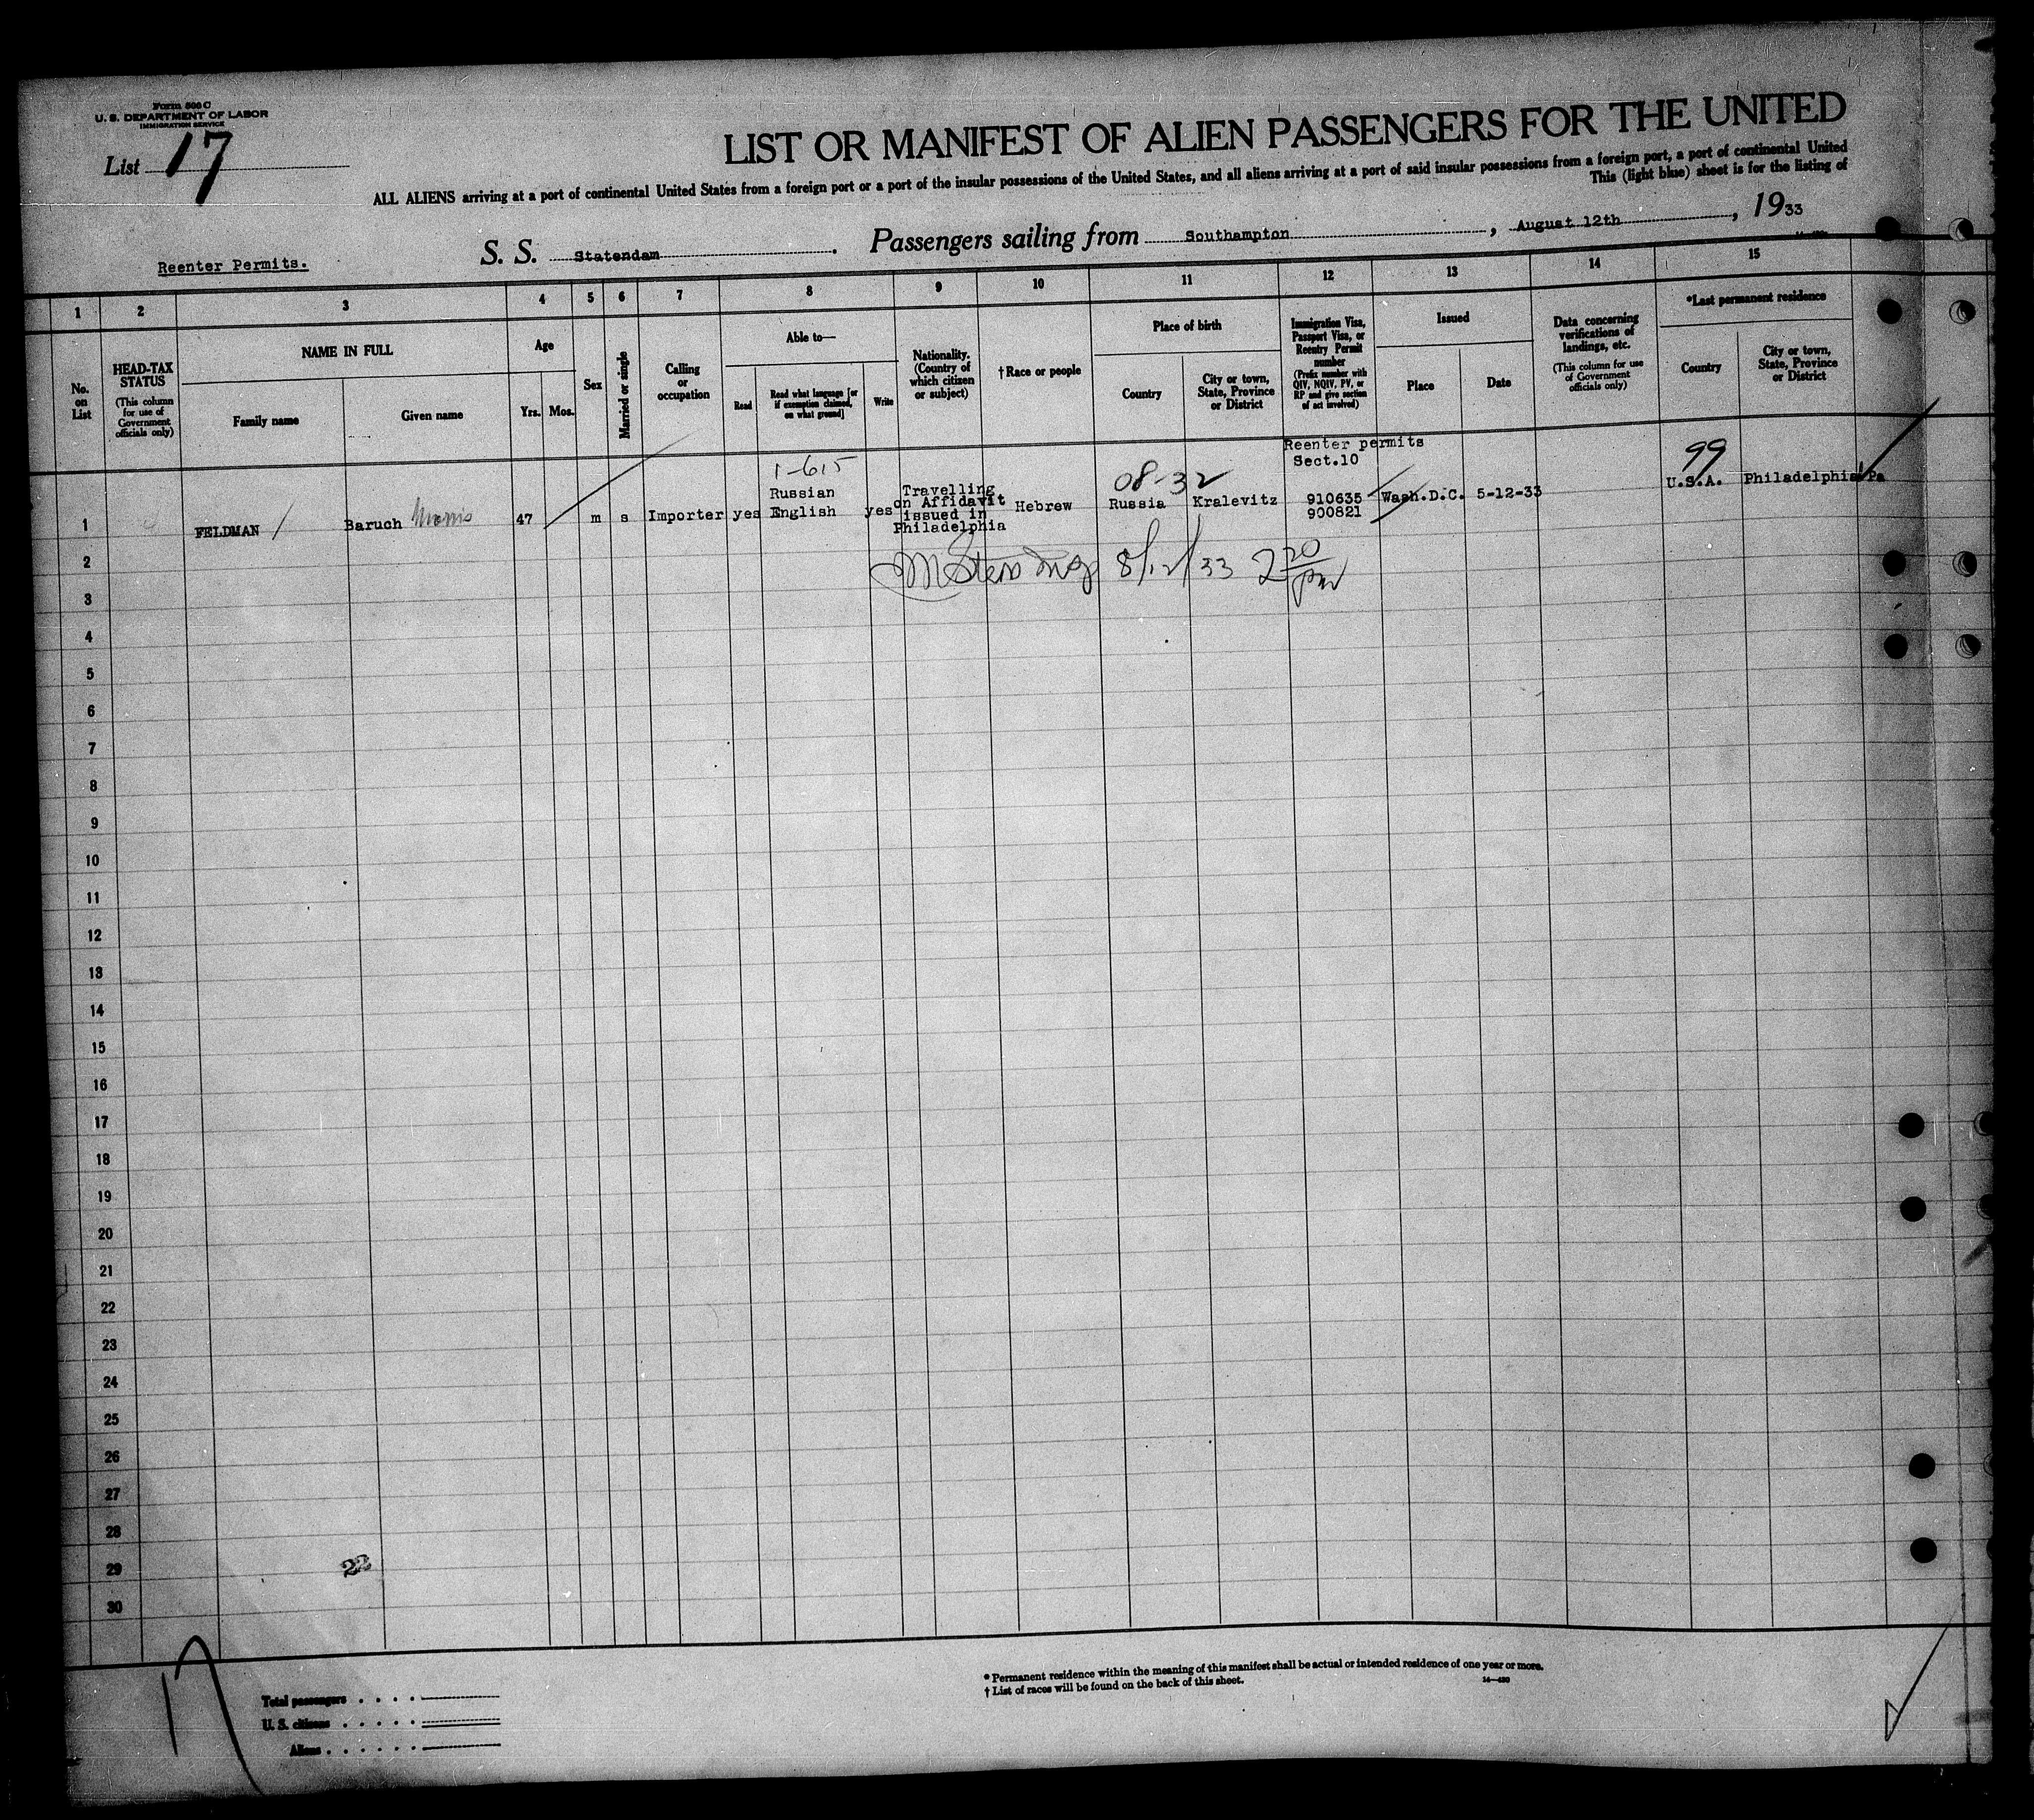 Form 500 C
U. S. DEPARTMENT OF LABOR
IMMIGRATION SERVICE
List 17
LIST OR MANIFEST OF ALIEN PASSENGERS FOR THE UNITED
ALL ALIENS arriving at a port of continental United States from a foreign port or a port of the insular possessions of the United States, and all aliens arriving at a port of said insular possessions from a foreign port, a port of continental United
This (light blue) sheet is for the listing of
Reenter Permits.
S. S. Statendam. Passengers sailing from Southampton, August 12th, 1933
1 2 3 4 5 6 7 8 9 10 11 12 13 14 15
No. on List
HEAD-TAX STATUS
(This column for use of Government officials only)
NAME IN FULL
Family name
Given name
Age
Yrs. Mos.
Sex
Married or single
Calling or occupation
Able to—
Read
Read what language [or if exemption claimed, on what ground]
Write
Nationality. (Country of which citizen or subject)
†Race or people
Place of birth
Country
City or town, State, Province or District
Immigration Visa, Passport Visa, or Reentry Permit number
(Prefix number with QIV, NQIV, PV, or RP and give section of act involved)
Issued
Place
Date
Data concerning verifications of landings, etc.
(This column for use of Government officials only)
*Last permanent residence
Country
City or town, State, Province or District
Reenter permits
Sect.10
1-615
08-32
99
1 FELDMAN Baruch Morris 47 m s Importer yes Russian English yes Travelling on Affidavit issued in Philadelphia Hebrew Russia Kralevitz 910635 900821 Wash.D.C. 5-12-33 U.S.A. Philadelphia Pa
8/12/33 2 20 pm
2
3
4
5
6
7
8
9
10
11
12
13
14
15
16
17
18
19
20
21
22
23
24
25
26
27
28
29
30
22
17
Total passengers
U. S. citizens
Aliens
* Permanent residence within the meaning of this manifest shall be actual or intended residence of one year or more.
† List of races will be found on the back of this sheet.
14—430